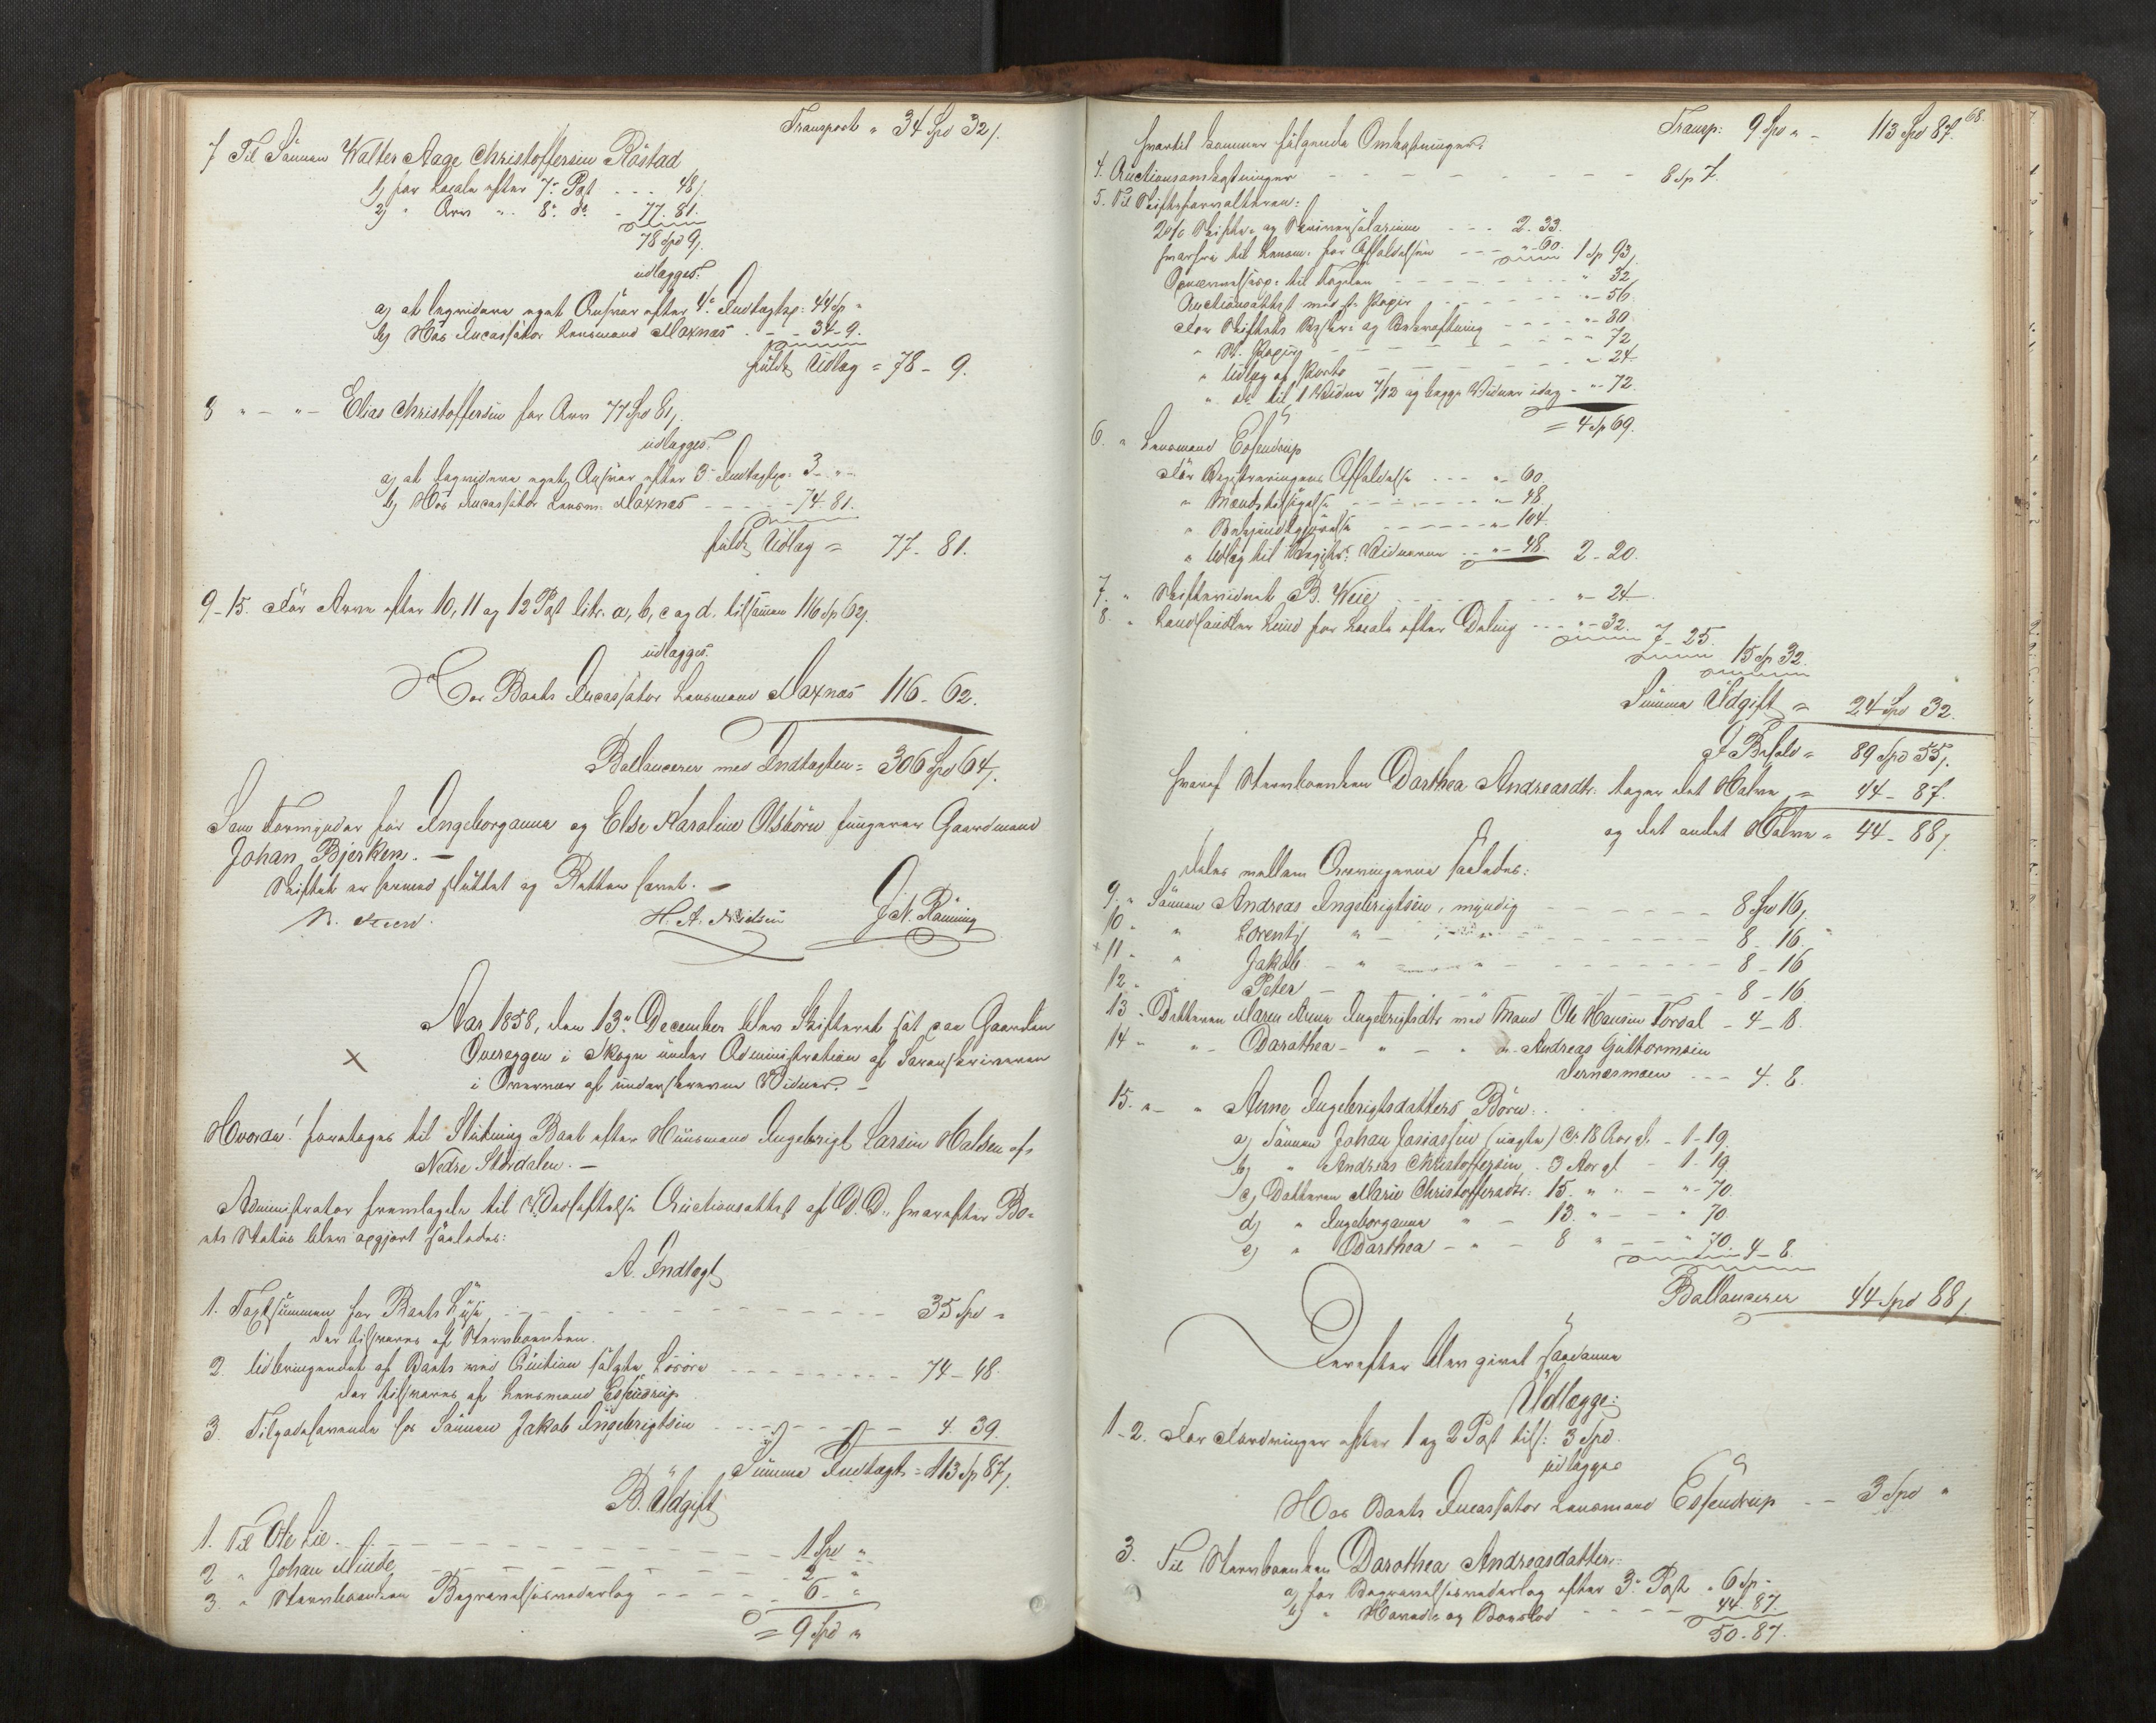 Transport " 34 Spd 32/.
7 Til Sönnen Walter Aage Christoffersen Röstad
1) for Locale efter 7de Post - - - 48/.
2) " Arv " 8de do - 77. 81.
78 Spd 9/.
udlægges:
a) at liqvidere eget Ansvar efter 4de Indtægtsp: 44 Sp "
b) Hos Incassator Lensmand Maxnæs - - 34 - 9.
fuldt Udlæg = 78 - 9.
8 " - " - Elias Christoffersen for Arv 77 Spd 81/.
udlægges:
a) at liqvidere eget Ansvar efter 3de Indtægtsp: 3 - " -
b) Hos Incassator Lensm: Maxnæs - - - - 74. 81.
fuldt Udlæg = 77. 81.
9-15. For Arve efter 10, 11 og 12 Post litr. a, b, c og d. tilsammen 116 Sp 62/.
udlægges:
Hos Boets Incassator Lensmand Maxnæs 116 - 62.
Ballancerer med Indtægten = 306 Spd 64/.
Som Formynder for Ingeborganna og Else Karoline Olsbörn fungerer Gaardmand
Johan Bjerken. -
Skiftet er hermed sluttet og Retten hævet. -
H. A. Nielsen J. N. Rönning
Aar 1858, den 13de December blev Skifteret sat paa Gaarden
Overeggen i Skogn under Administration af Sorenskriveren
i Overvær af underskrevne Vidner. -
Hvorda! foretoges til Slutning Boet efter Huusmand Ingebrigt Larsen Halsen af
Nedre Stördalen. -
Administrator fremlagde til Vedhæftelse Auctionsattest af D. D., hvorefter Bo-
ets Status blev opgjort saaledes:
A. Indtægt
1. Taxtsummen for Boets Huse - - - - 35 Spd "
der tilsvares af Stervboenken.
2. Udbringendet af Boets ved Auction solgte Lösöre - - - - 74 - 48.
der tilsvares af Lensmand Essendrup
3. Tilgodehavende hos Sönnen Jakob Ingebrigtsen - - - - 4. 39.
Summa Indtægt = 113 Sp 87/.
B. Udgift
1. Til Ole Lie - - - - 1 Spd "
2 " Johan Minde - - - - 2 - "
3. " Stervboenken Begravelsesvederlag - - - - 6 - "
= 9 Spd "
68.
Transp: 9 Spd " - 113 Spd 87.
hvortil kommer fölgende Omkostninger:
4. Auctionsomkostninger - - - - 8 Sp 7.
5. Til Skifteforvalteren:
2 % Skifte- og Skriversalarium - - - 2. 33.
herfra til Lensm. for Afholdelsen - - - " - 60. 1 Sp 93/.
Opnævnelsesp. til Vagten - - - - " 32
Auctionsattest med st. Papir - - - - " - 56
For Skiftets Beskr: og Bekræftning - - - - " - 80
" St. Papir - - - - 72
" Udlæg af Porto - - - - " - 24
" do til 1 Vidne 7/12 og begge Vidner idag - " - 72.
= 4 Sp 69.
6. " Lensmand Essendrup
For Registreringens Afholdelse - - - " - 60
" Mænds tilsigelse - - - - " - 48
" Bekjendtgjörelse - - - - " - 104
" Udlæg til Registr: Vidnerne - - " - 48. 2 - 20.
7. " Skiftevidnet B. Weie - - - - " - 24
8. " Landhandler Lund for Locale efter Deling - - - " - 32. 7 - 25.
15 Sp 32.
Summa Udgift = 24 Spd 32.
I Behold = 89 Spd 55/.
hvoraf Stervboenken Dorthea Andreasdtr: tager det Halve = 44 - 87.
og det andet Halve = 44 - 88/.
deles mellem Arvingerne saaledes:
9. " Sönnen Andreas Ingebrigtsen, myndig - - - - 8 Spd 16/.
10 - " Lorents " - - - - 8 - 16.
+ 11 - " Jakob - " - " - - - - 8 - 16
12 - " Peter - - " - - - - 8 - 16.
13 - Datteren Maren Anna Ingebrigtsdtr med Mand Ole Hansen Fordal - 4 - 8.
14 - " - Dorothea - " - " " - Andreas Guttormsen
Vernæsmoen - - - 4. 8.
15. " - " Anne Ingebrigtsdatters Börn:
a) Sönnen Johan Josiassen (uægte) Ca 18 Aar gl. - 1 - 19.
b) " Andreas Christoffersen - 3 Aar gl - 1 - 19.
c) Datteren Marie Christoffersdtr: 15. " " - " - 70.
d) " Ingeborganna " - 13. " - - " 70.
e) " Dorthea - " - 8 " - - " 70. 4 - 8.
Ballancerer 44 Spd 88/.
Derefter blev givet saadanne
Udlægge:
1-2. For Fordringer efter 1 og 2 Post tils: 3 Spd.
udlægges
Hos Boets Incassator Lensmand Essendrup - - 3 Spd "
3. Til Stervboenken Dorothea Andreasdatter:
a) for Begravelsesvederlag efter 3de Post " 6 Sp "
b) " Hoved- og Boeslod - - - - 44. 87.
50 - 87.